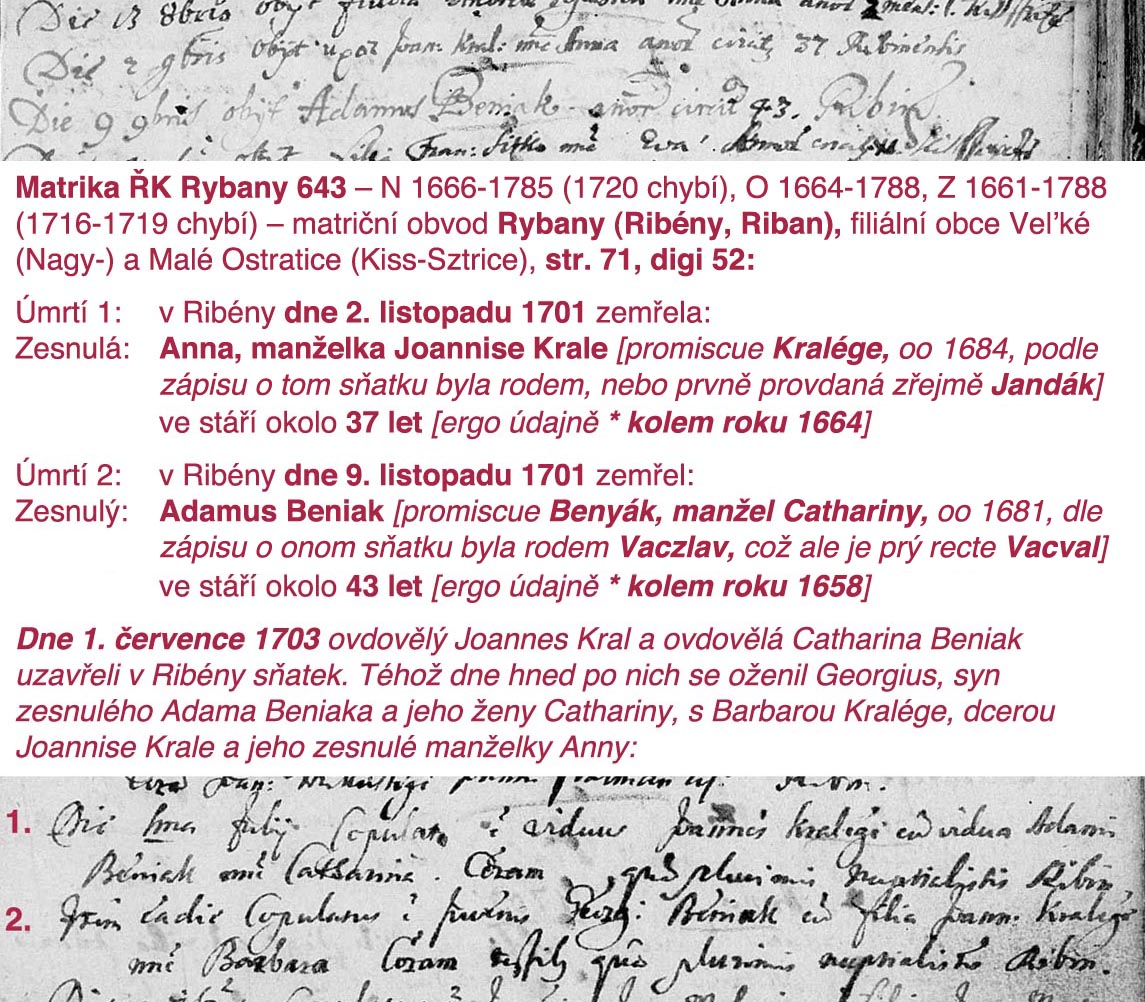 Die 13 8bris obyt
Die 2 9bris obyt uxor Joan: Kral: nñe Anna annor circit 37 Ribinensis
Die 9 9bris obyt Adamus Beniak annor circit 43. Ribin
obyt filia Fran: nñe Ewa
Matrika ŘK Rybany 643 – N 1666-1785 (1720 chybí), O 1664-1788, Z 1661-1788
(1716-1719 chybí) – matriční obvod Rybany (Ribény, Riban), filiální obce Veľké
(Nagy-) a Malé Ostratice (Kiss-Sztrice), str. 71, digi 52:
Úmrtí 1: v Ribény dne 2. listopadu 1701 zemřela:
Zesnulá: Anna, manželka Joannise Krale [promiscue Kralége, oo 1684, podle
zápisu o tom sňatku byla rodem, nebo prvně provdaná zřejmě Jandák]
ve stáří okolo 37 let [ergo údajně * kolem roku 1664]
Úmrtí 2: v Ribény dne 9. listopadu 1701 zemřel:
Zesnulý: Adamus Beniak [promiscue Benyák, manžel Cathariny, oo 1681, dle
zápisu o onom sňatku byla rodem Vaczlav, což ale je prý recte Vacval]
ve stáří okolo 43 let [ergo údajně * kolem roku 1658]
Dne 1. července 1703 ovdovělý Joannes Kral a ovdovělá Catharina Beniak
uzavřeli v Ribény sňatek. Téhož dne hned po nich se oženil Georgius, syn
zesnulého Adama Beniaka a jeho ženy Cathariny, s Barbarou Kralége, dcerou
Joannise Krale a jeho zesnulé manželky Anny:
1. Die 1ma July Copulatus ē viduus Joannes Kralégé cū vidua Adami
Béniak nñe Catharina. Coram quā plurimis nuptialistis Ribin.
2. Item eadie Copulatus ē juvenis Georgi: Béniak cū filia Joann: Kralégé
nñe Barbara Coram quā plurimis nuptialistis Ribin.